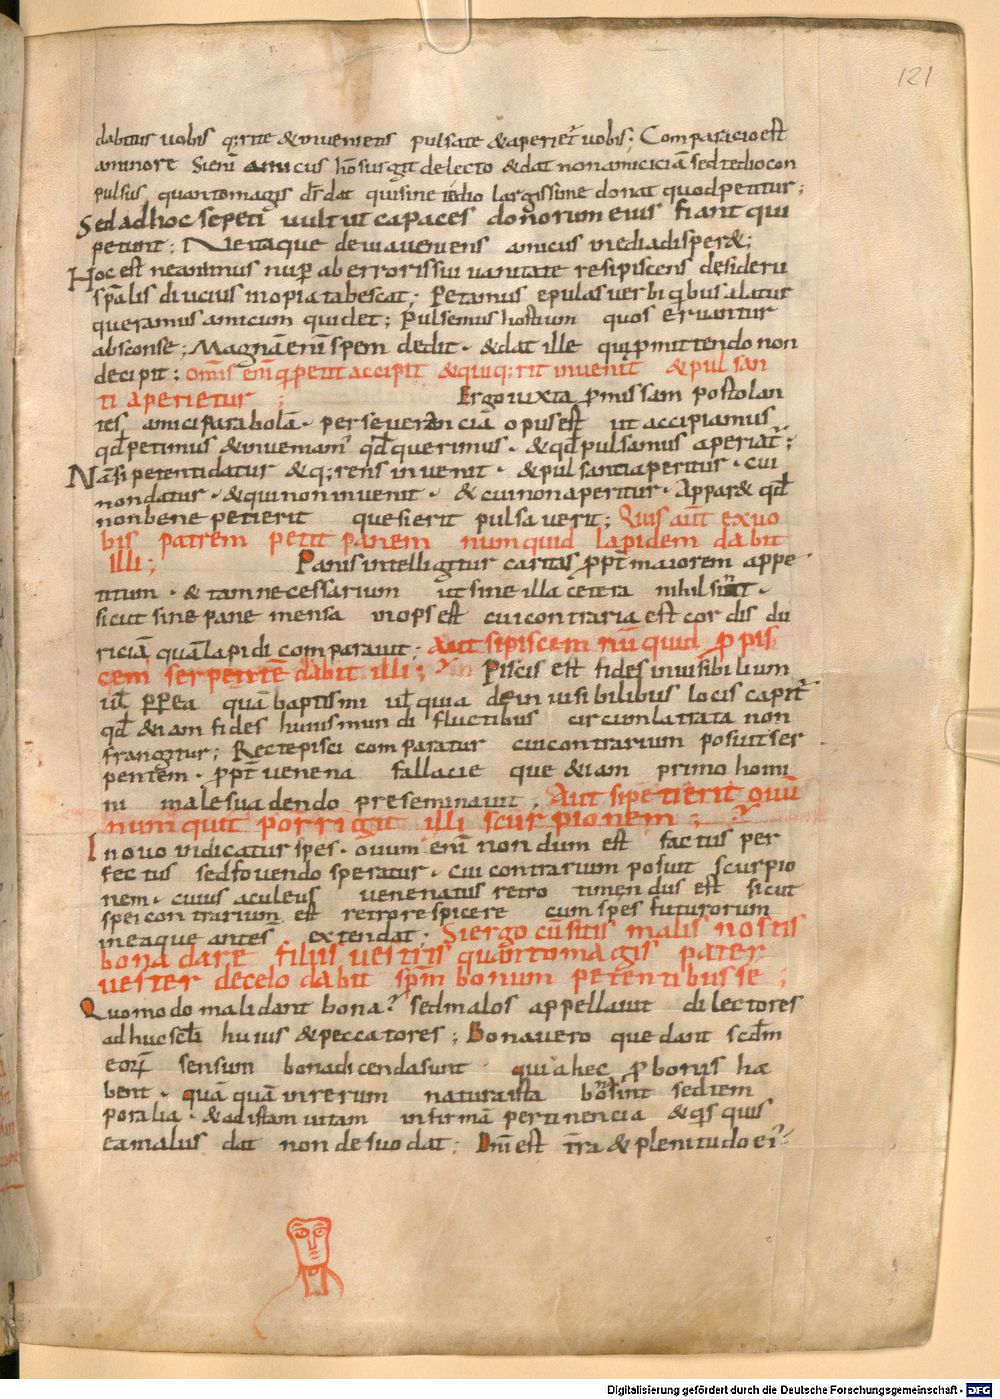 121
dabitur vobis q;rite & invenietis pulsate & aperiet̃ vobis; Comparacio est
aminore Sieni amicus hõ surgit delecto & dat non amiciciã sed tedio con
pulsus quantomagis d̃s dat qui sine tedio largissime donat quod petitur;
Sed ad hoc se peti vult ut capaces donorum eius fiant qui
petunt; Ne itaque de via veniens amicus in edia disper&;
Hoc est ne animus nup̃ ab erroris sui vanitate resipiscens desiderii
sp̃alis diucius inopia tabescat; Petamus epulas verbi quibus alatur
queramus amicum qui det; Pulsemus hostium quos eruantur
absconse; Magnã enĩ spem dedit. & dat ille qui p̃mittendo non
decipit; Omñis enĩ qui petit accipit & qui q;rit invenit & pulsan
ti aperietur; Ergo iuxta p̃missam postolan
tes amici parabolã. perseverancia opus est ut accipiamus
qđ petimus & inveniam̃ qđ querimus. & qđ pulsamus aperiat̃;
Nã si petenti datur & q;rens invenit. & pulsanti aperitur. cui
non datur. & qui non invenit. & cui non aperitur. Appar& qđ
non bene petierit quesierit pulsaverit; Quis aut̃ ex vo
bis patrem petit panem numquid lapidem dabit
illi; Panis intelligitur caritas p̃pt̃ maiorem appe
titum. & tam necessarium ut sine illa cetera nihil sint.
sicut sine pane mensa inops est cui contraria est cordis du
riciã quã lapidi comparavit; Aut si piscem nũquid p̃ pis
cem serpentẽ dabit illi; Piscis est fides invisibilium
ul̃ p̃p̃ ea quã baptismi ul̃ quia de invisibilibus locis capit̃
qđ &iam fides huius mundi fluctibus circumlatrata non
frangitur; Recte pisci comparatur cui contrarium posuit ser
pentem. p̃pt̃ venena fallacie que &iam primo homi
ni male suadendo preseminavit. Aut si petierit ovũ
numquit porrigit illi scurpionem;
In ovo indicatur spes. ovum enĩ nondum est factus per
fectus sed fovendo speratur. cui contrarum posuit scurpio
nem. cuius aculeus venenatus retro timendus est sicut
spei contrarium est retro respicere cum spes futurorum
in ea que ante s̃ extendat; Si ergo cũ sitis malis nostis
bona dare filiis vestris quantomagis pater
vester de celo dabit sp̃m bonum petentibus se;
Quomodo mali dant bona? sed malos appellavit dilectores
adhuc scl̃i huius & peccatores; Bona vero que dant scđm
eor̃ sensum bona dicenda sunt quia hec p̃ bonis ha
bent. quã quã in rerum natura ista bona sint sed tem
poralia. & ad istam vitam infirmã pertinencia & quis quis
ea malus dat non de suo dat; Dñi est t̃ra & plenitudo ei;
Digitalisierung gefördert durch die Deutsche Forschungsgemeinschaft - DFG